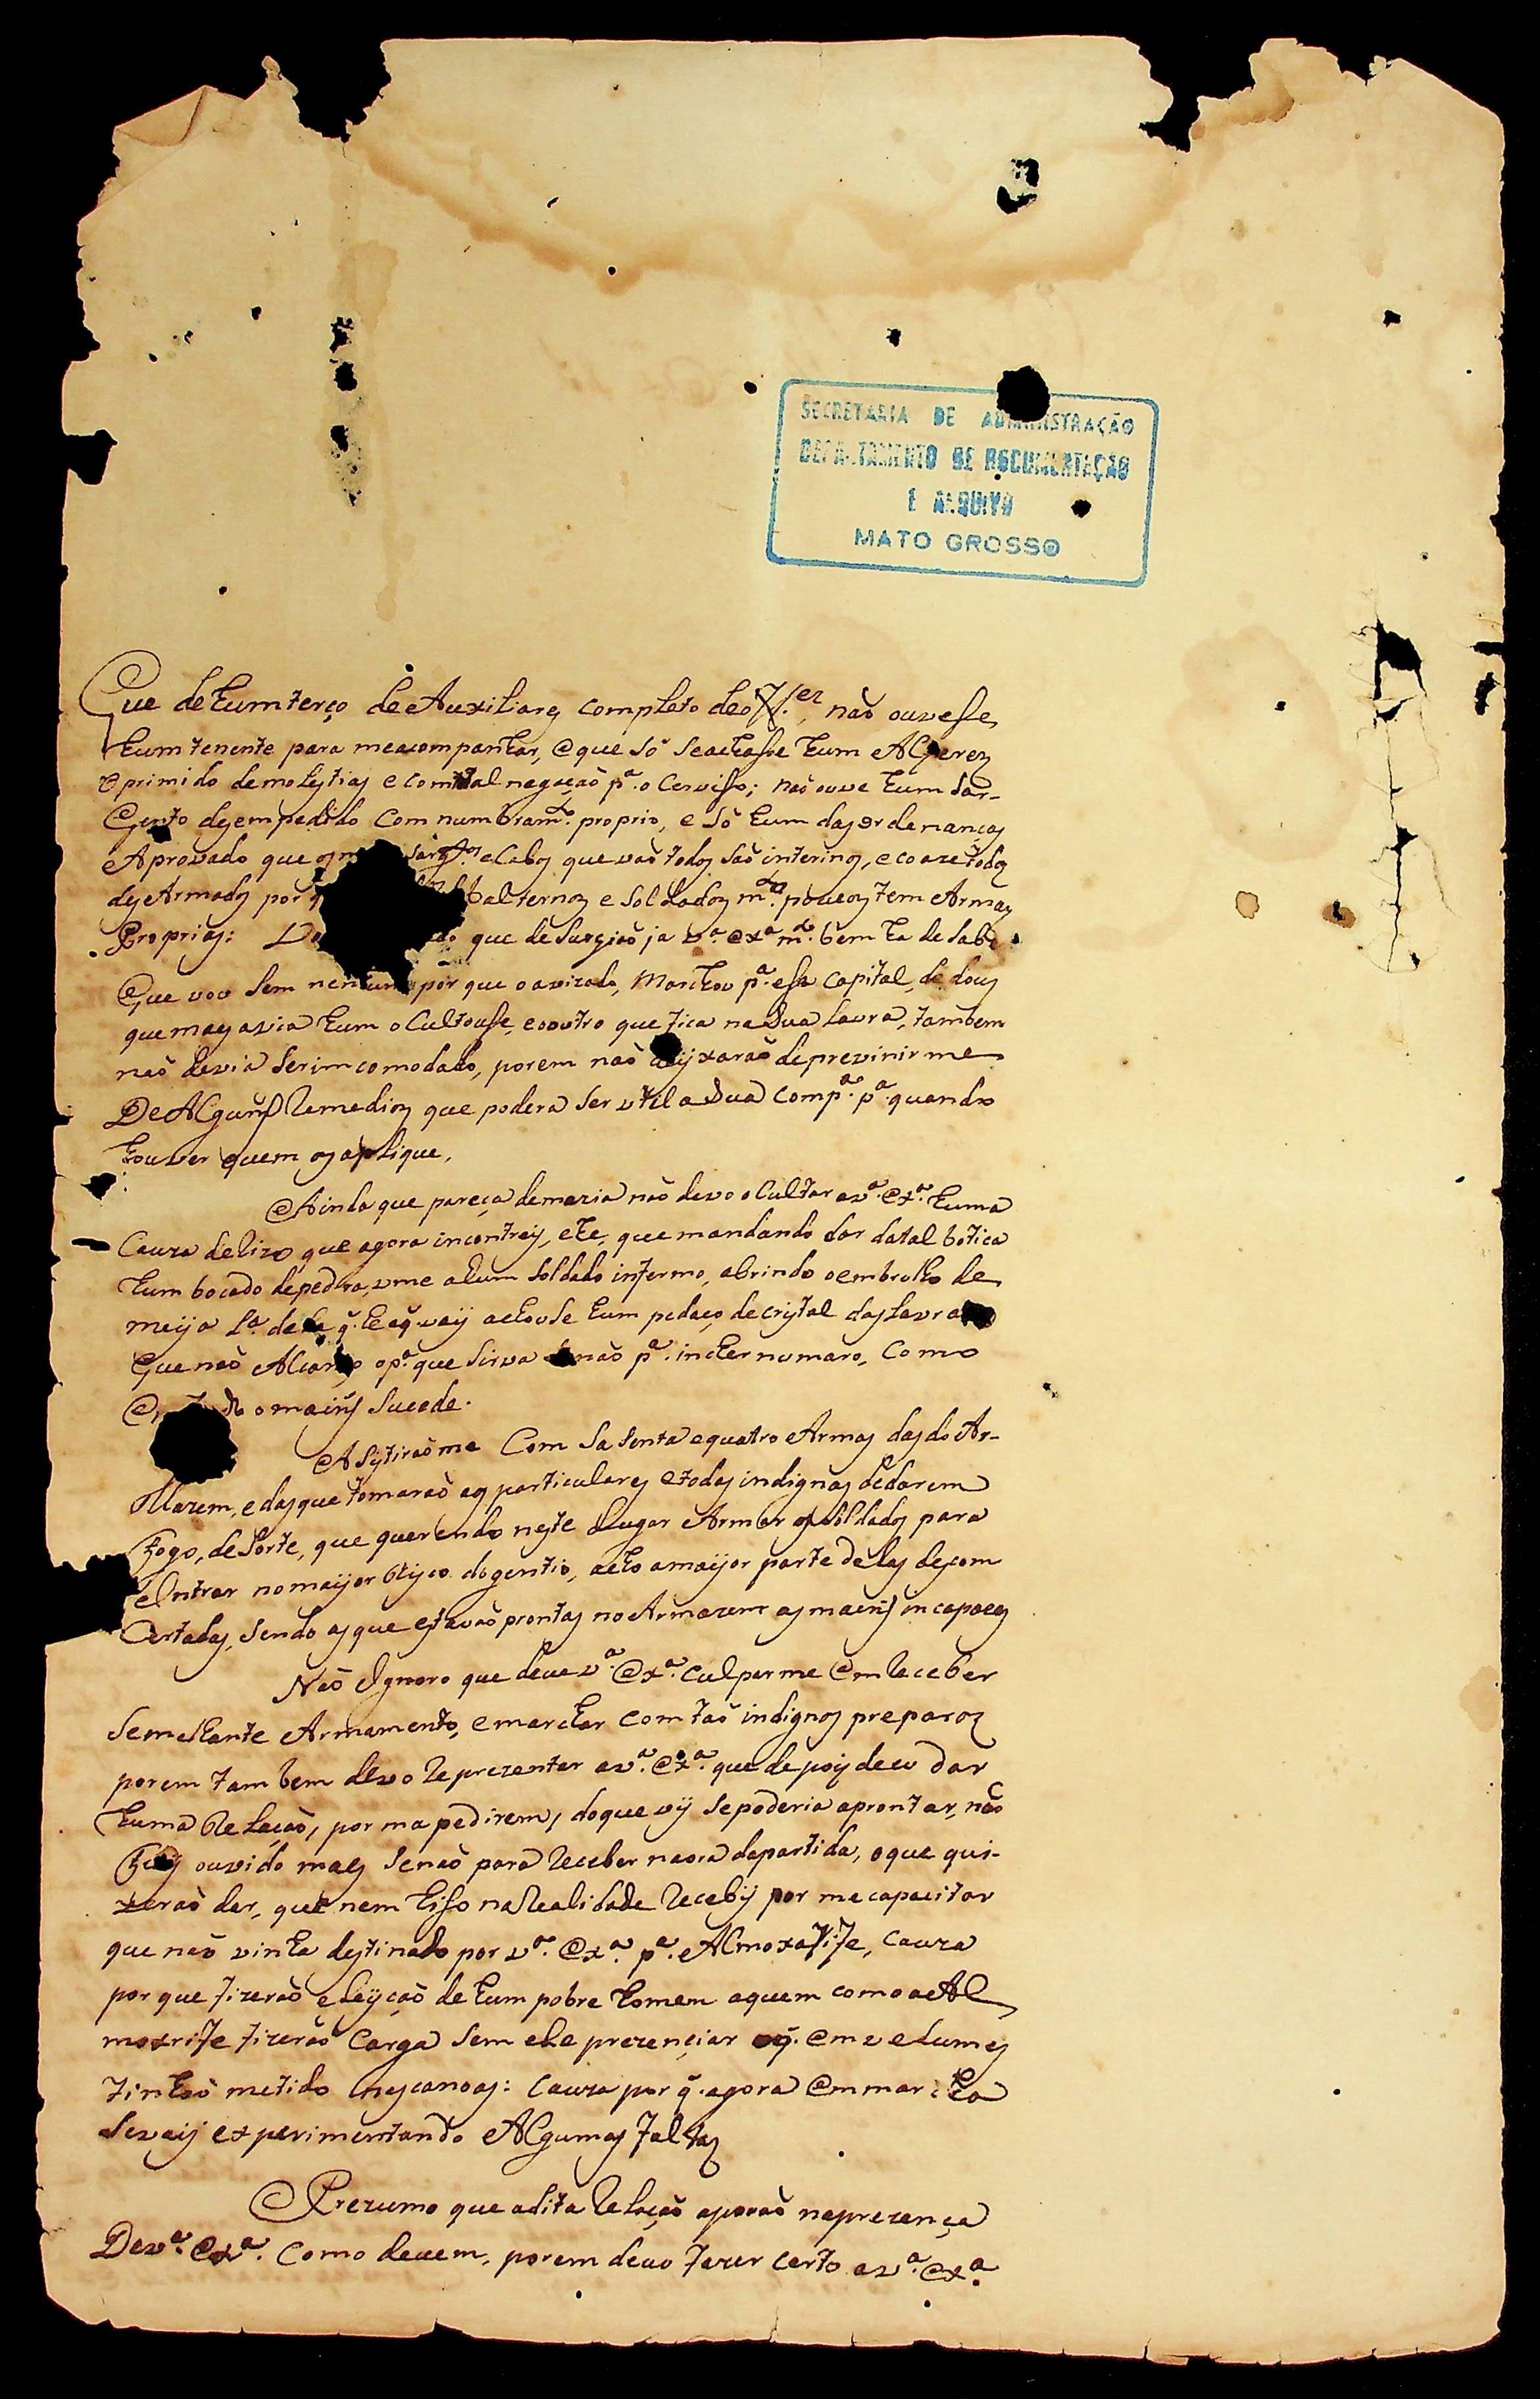 SECRETARIA DE ADMINISTRAÇÃO
DEPARTAMENTO DE DOCUMENTAÇÃO
E ARQUIVO
MATO GROSSO
Que de hum terço de Auxiliares completo de off.es, não ouvesse,
hum tenente para meacompanhar, e que só seachasse hum Alferes
oprimido demolestias e com tal negação p.a o Cervisso; não ouve hum Sar-
gento desempedido com numbram.to proprio, e só hum das ordenanças
Aprovado que os sarg.tos e Cabos que vão todos são interinos, e coaze todos
desArmados por baltернos e Soldados m.tos poucos tem Armas
Proprias: que de Surgião ja v.a ex.a m.to bem ha de Saber
Que vou Sem nenhum por que o avizado, Marchou p.a essa Capital, de dous
que mais avia hum oCultousse, e o outro que fica na Sua Lavra, tambem
não devia Ser imcomodado, porem não deijxarão deprevinir me
De Alguns Remedios que podera Ser util a Sua Comp.a p.a quando
houver quem os aplique,
Ainda que pareça demazia não devo oCultar a v.a Ex.a huma
Cauza de lizo, que agora incontrey, e he, que mandando dar datal botica
hum bocado depedra, ume ahum Soldado infermo, abrindo oembrulho de
meija L.a dela q. he aq vaij achouse hum pedaço decristal das Lavras
Que não Alcanço op.a que Sirva Senão p.a incher numaro, Como
omaiis Sucede.
ASistirão me Com Sasenta equatro Armas das do Ar-
Mazem, e das que tomarão aos particulares etodas indignas dedarem
Fogo, deSorte, que querendo neste Lugar Armar os Soldados para
Entrar nomaijor Risco dogentio, acho amaijor parte delas descom
Certadas, Sendo as que estavão prontas no Armazem as maiis incapaces
Não Ignoro que deve v.a Ex.a Culparme Em Receber
Semelhante Armamento, emarchar com tão indignos preparos
porem tambem devo Reprezentar a v.a Ex.a que depois deeu dar
huma Relação, por ma pedirem, doque vij Sepoderia aprontar, não
Fuy ouvido mais Senão para Receber naora dapartida, oque qui-
zerão dar, que nem hisso naRealidade Recebij por mecapacitar
que não vinha destinado por v.a Ex.a p.a Almoxarife, Cauza
por que fizerão eleijção de hum pobre homem aquem como aAl
moxrife fizerão Carga Sem ele prezenciar oq. Em velumes
tinhão metido nas canoas: Cauza por q. agora Em marcha
Sevaij experimentando Algumas faltas
Prezumo que adita Relação aporão naprezença
De v.a Ex.a Como devem, porem devo fazer certo a v.a Ex.a